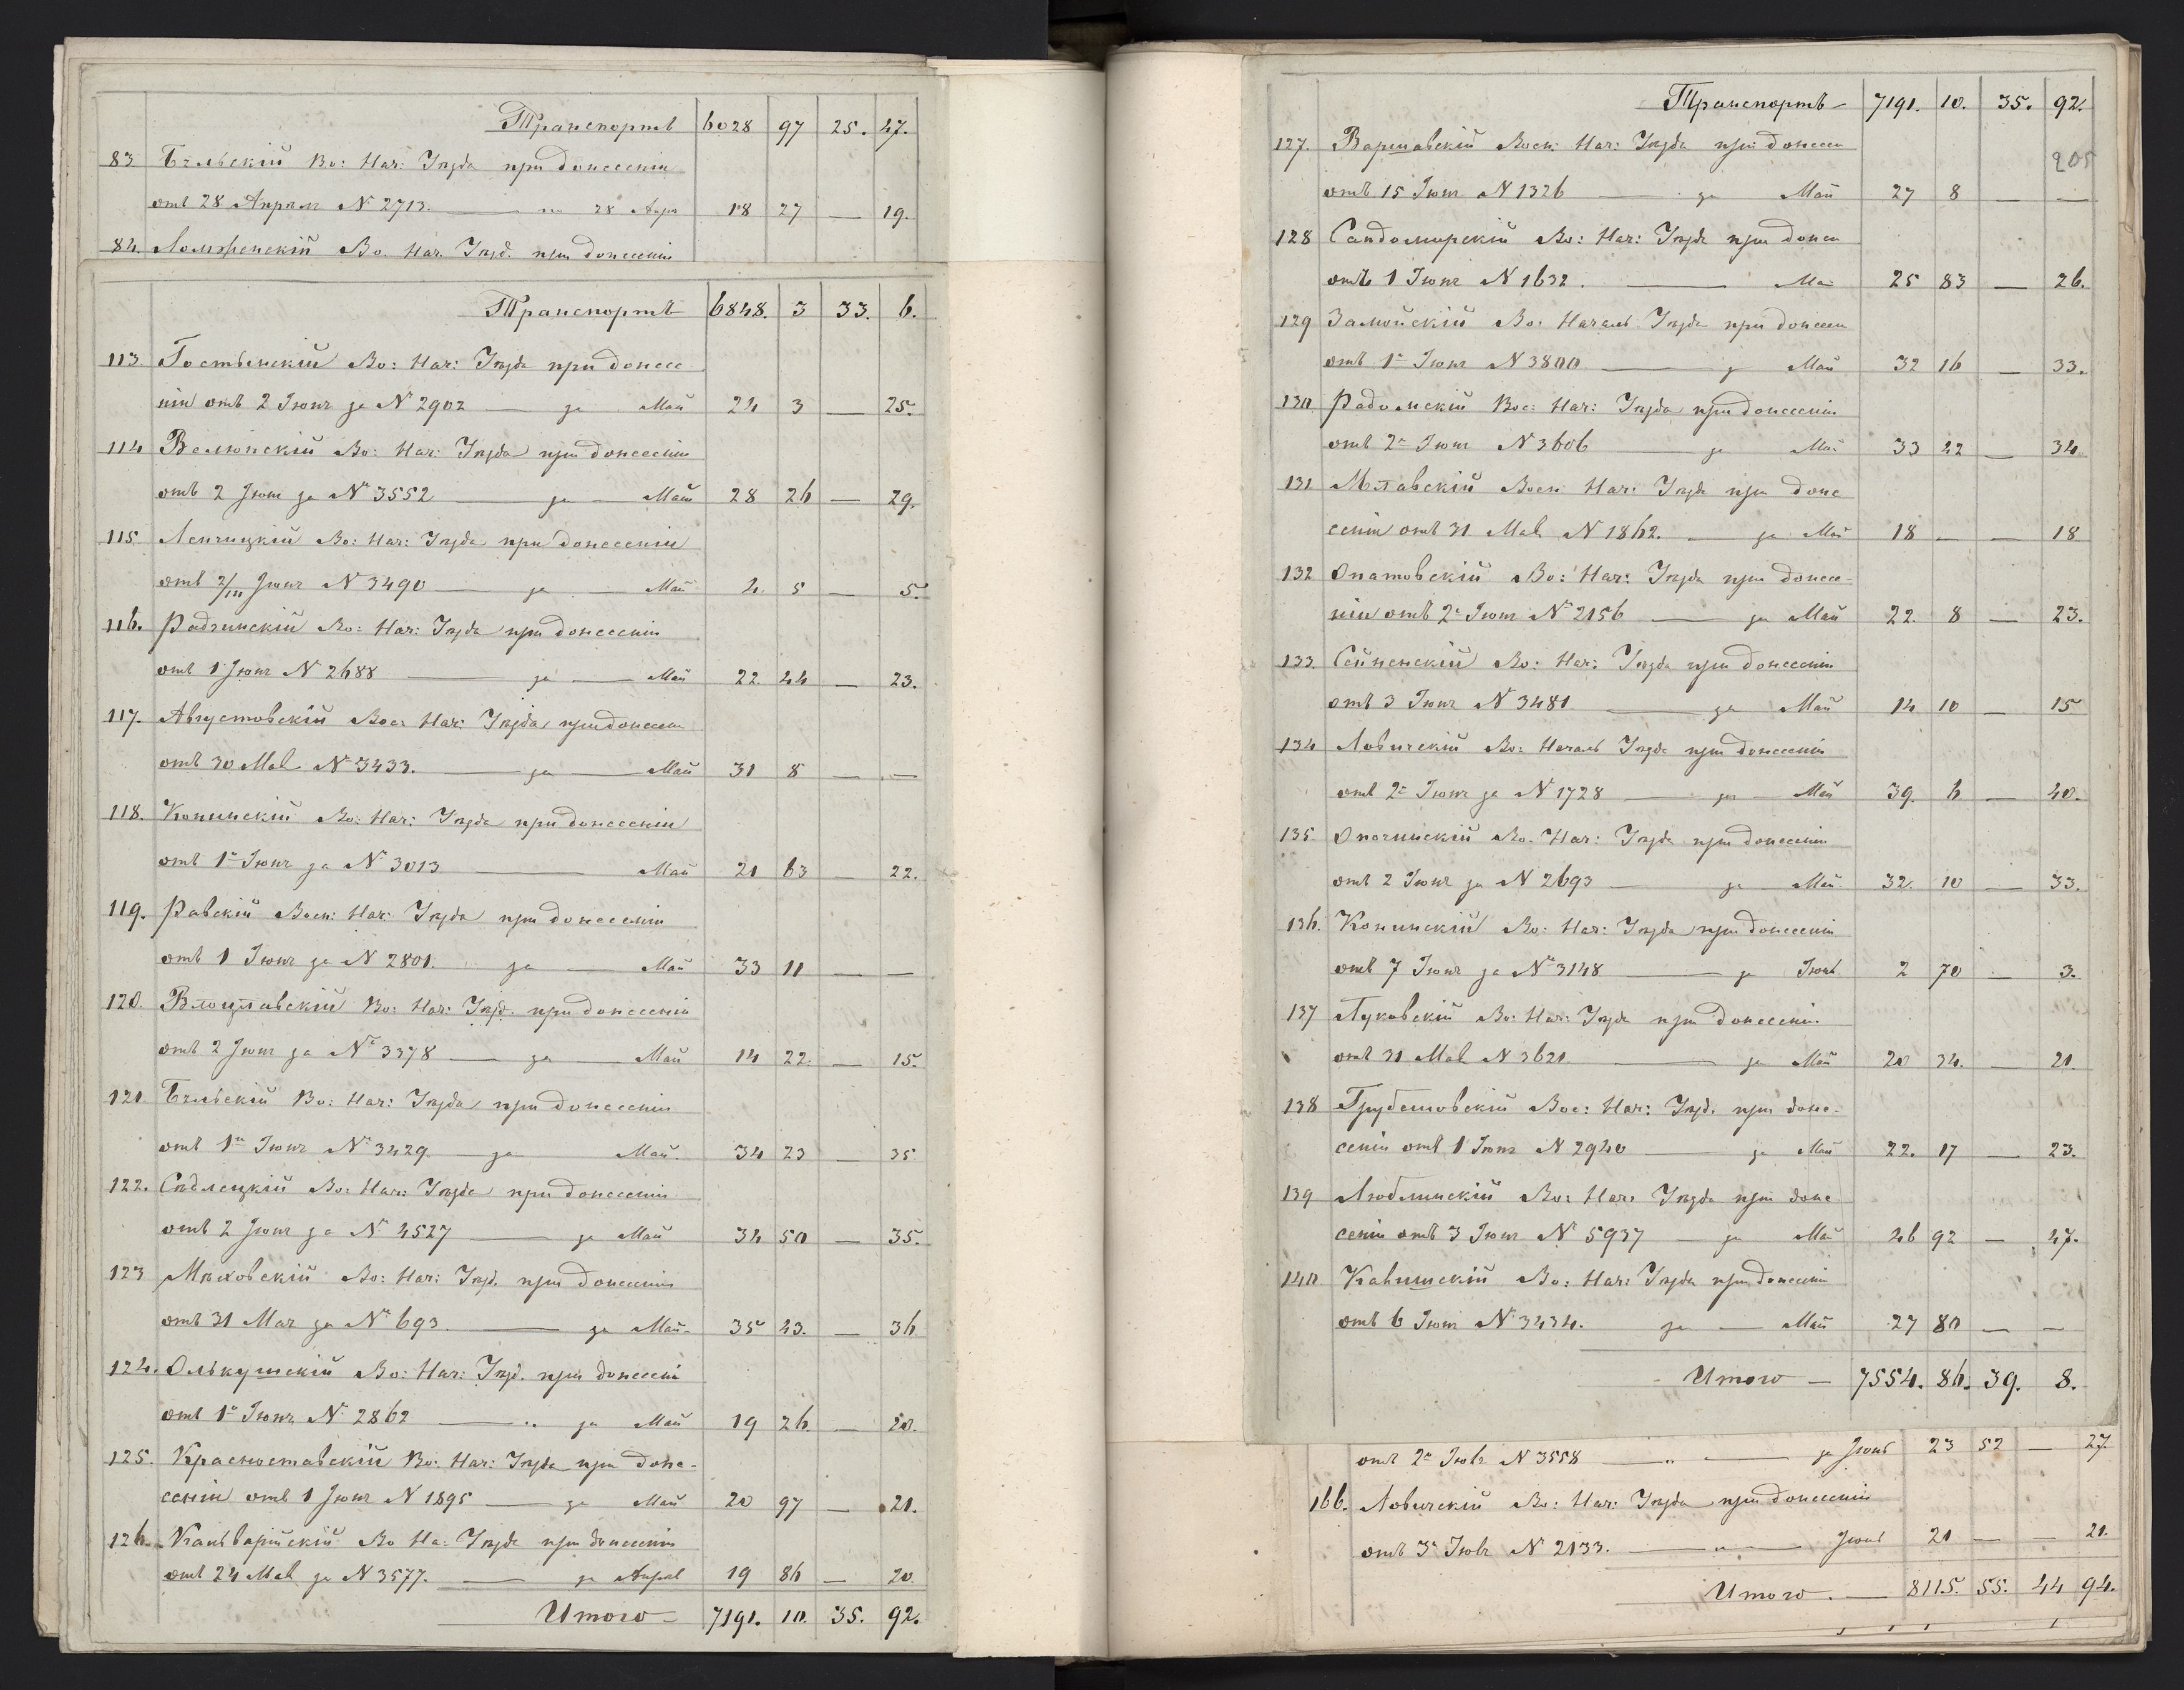 Транспортъ 6028 97 25. 47.
83 Бѣльскій Во: Нач: Уѣзда при донесеніи
отъ 28 Апрѣля № 2713. — по 28 Апр 18 27 — 19.
84. Ломженскій Во. Нач. Уѣзд. при донесеніи
Транспортъ 6848. 3 33. 6.
113. Гостынскій Во: Нач: Уѣзда при донесе
ніи отъ 2 Іюня за № 2902 — за Май 24 3 — 25.
114 Велюнскій Во: Нач: Уѣзда при донесеніи
отъ 2 Іюня за № 3552 — за — Май 28 26 — 29.
115. Ленчицкій Во: Нач: Уѣзда при донесеніи
отъ Іюня № 3490 — за — Май 4 5 — 5.
116. Радзинскій Во: Нач: Уѣзда при донесеніи
отъ 1 Іюня № 2688 — за — Май 22. 44 — 23.
117. Августовскій Вое: Нач: Уѣзда при донесен
отъ 30 Мая № 3433. — за — Май 31 8 — —
118. Конинскій Во: Нач: Уѣзда при донесеніи
отъ 1 Іюня за № 3013 — Май 21 63 — 22.
119. Равскій Воен: Нач: Уѣзда при донесеніи
отъ 1 Іюня за № 2801. за — Май 33 11 — —
120. Влоцлавскій Во: Нач: Уѣзд. при донесеніи
отъ 2 Іюня за № 3378 — за — Май 14 22. — 15.
121 Бѣльскій Во: Нач: Уѣзда при донесеніи
отъ 1 Іюня № 3429 — за Май. 34 23 — 35
122. Сѣдлецкій Во: Нач: Уѣзда при донесеніи
отъ 2 Іюня за № 4527 — за Май 34 50 — 35.
123 Мѣховскій Во: Нач: Уѣзд. при донесеніи
отъ 31 Мая за № 693. — за Май 35 43. — 36
124. Олькушскій Во: Нач: Уѣзд. при донесені
отъ 1 Іюня № 2862 — " за Май 19 26. — 20.
125. Красноставскій Во: Нач: Уѣзда при доне-
сеніи отъ 1 Іюня № 1895 — за Май 20 97 — 21.
126. Кальварійскій Во На: Уѣзда при донесеніи
отъ 24 Мая за № 3577. — за Апрѣл 19 86 — 20.
Итого — 7191. 10. 35. 92.
Транспортъ — 7191. 10. 35. 92.
205
127. Варшавскій Воен: Нач: Уѣзда при донесен
отъ 15 Іюня № 1326 — за Май 27 8 — —
128 Сандомирскій Во: Нач: Уѣзда при донесе
отъ 1 Іюня № 1632. — Ма 25 83 — 26.
129 Замойскій Во: Началь Уѣзда при донесен
отъ 1 Іюня № 3800 — з Май 32 16 — 33.
130 Радомскій Вое: Нач: Уѣзда при донесеніи
отъ 2 Іюня № 3606 — за Май 33 22 — 34
131 Млавскій Воен Нач: Уѣзда при доне
сеніи отъ 31 Мая № 1862. — за Май 18 — — 18
132 Опатовскій Во: Нач: Уѣзда при донесе-
ніи отъ 2 Іюня № 2156 — за Май 22. 8 — 23.
133. Сейненскій Во: Нач: Уѣзда при донесеніи
отъ 3 Іюня № 3481 — за Май 14 10 — 15
134 Ловичскій Во: Началь Уѣзда при донесеніи
отъ 2 Іюня за № 1728 — за Май 39. 6 — 40.
135 Опочинскій Во. Нач: Уѣзда при донесеніи
отъ 2 Іюня за № 2693 — за Май. 32. 10 — 33.
136. Конинскій Во: Нач: Уѣзда при донесеніи
отъ 7 Іюня за № 3148 — за Іюнь 2 70 — 3.
137 Луковскій Во: Нач: Уѣзда при донесеніи
отъ 31 Мая № 3621. — за Май 20 34. — 21.
138 Грубешовскій Вое: Нач: Уѣзд. при доне-
сеніи отъ 1 Іюня № 2940 — за Май 22. 17 — 23.
139 Люблинскій Во: Нач: Уѣзда при доне
сеніи отъ 3 Іюня № 5937 — за Май 46 92 — 47.
140. Калишскій Во: Нач: Уѣзда при донесеніи
отъ 6 Іюня № 3434. за — Май 27 80 — —
Итого — 7554. 86. 39. 8.
отъ 2 Іюля № 3558 — " — за Іюнь 23 52 — 27
166. Ловичскій Во: Нач: Уѣзда при донесеніи
отъ 3 Іюля № 2133. — " — Іюнь 21 — — 21.
Итого. — 8115. 55. 44 94.